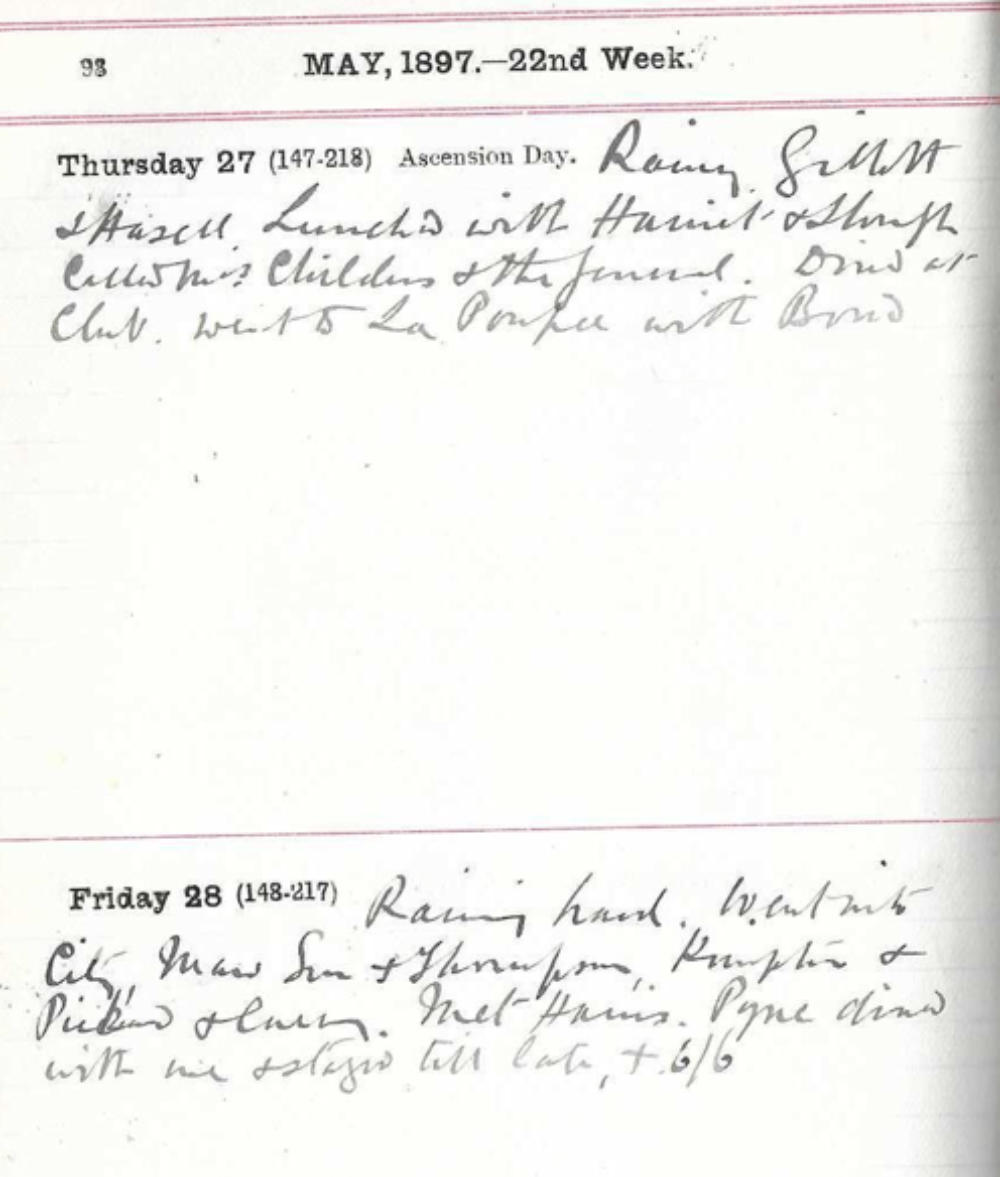 98 MAY, 1897.—22nd Week.
Thursday 27 (147-218) Ascension Day. Rainy Gillott
& Hasell. Lunched with Harriet & Slough
Called Mrs Childers & the funeral. Dined at
Club. Went to La Poupee with Bond
Friday 28 (148-217) Raining hard. Went into
City, Maw Son & Thompson,
Met Harris. Pyne dined
with me & stayed till late, + 6/6